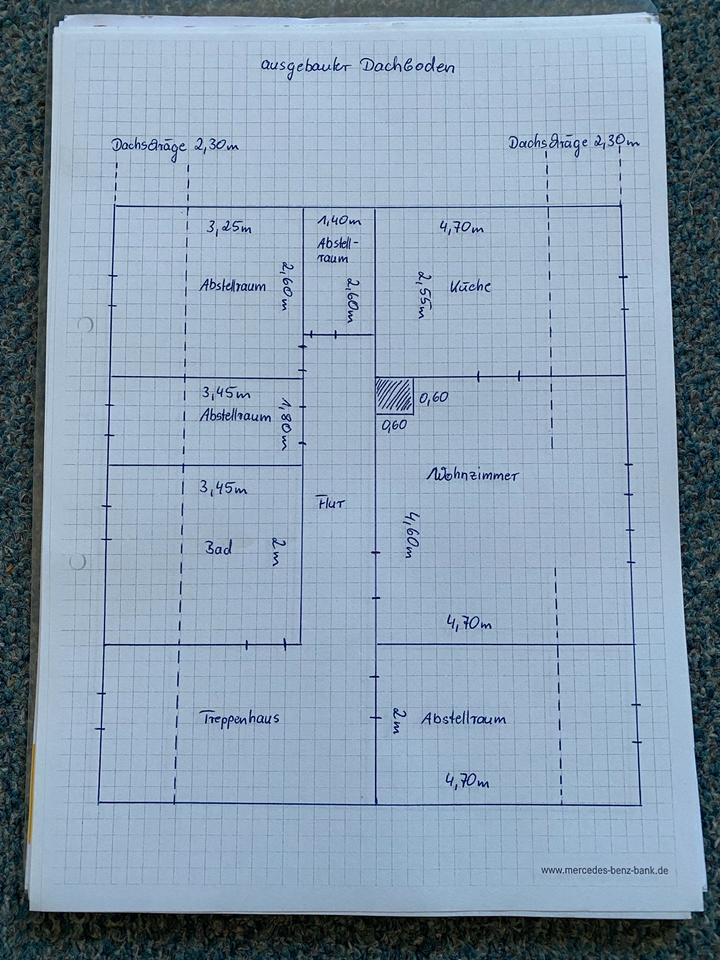 ausgebauter Dachboden
Dachschräge 2,30m
Dachschräge 2,30m
3,25m
Abstellraum
2,60m
1,40m
Abstell-
raum
2,60m
4,70m
2,55m
Küche
3,45m
Abstellraum
1,80m
0,60
0,60
3,45m
Bad
2m
Flur
Wohnzimmer
4,60m
4,70m
Treppenhaus
2m
Abstellraum
4,70m
www.mercedes-benz-bank.de